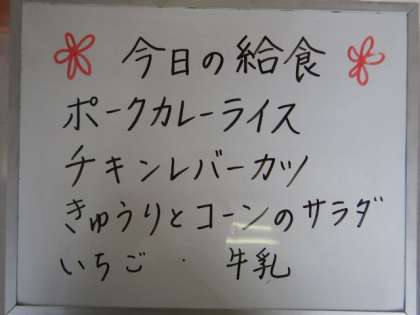 今日の給食
ポークカレーライス
チキンレバーカツ
きゅうりとコーンのサラダ
いちご ・ 牛乳